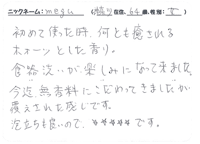 ニックネーム：megu （横浜在住、64歳、性別：女）
初めて使った時、何とも癒される
ホォーンとした香り。
食器洗いが楽しみになって来ました
今迄無香料にこだわってきましたが
覆えされた感じです。
泡立ちも良いので、☆☆☆☆☆です。